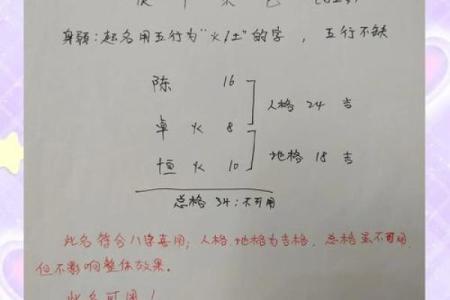 身弱：起名用五行为“火/土”的字，五行不缺
陈 16
人格 24 吉
卓 火 8
地格 18 吉
恒 火 10
总格 34：不可用
此名符合八字喜用；人格、地格为吉格，总格虽不可用
但不影响整体效果。
此名可用！